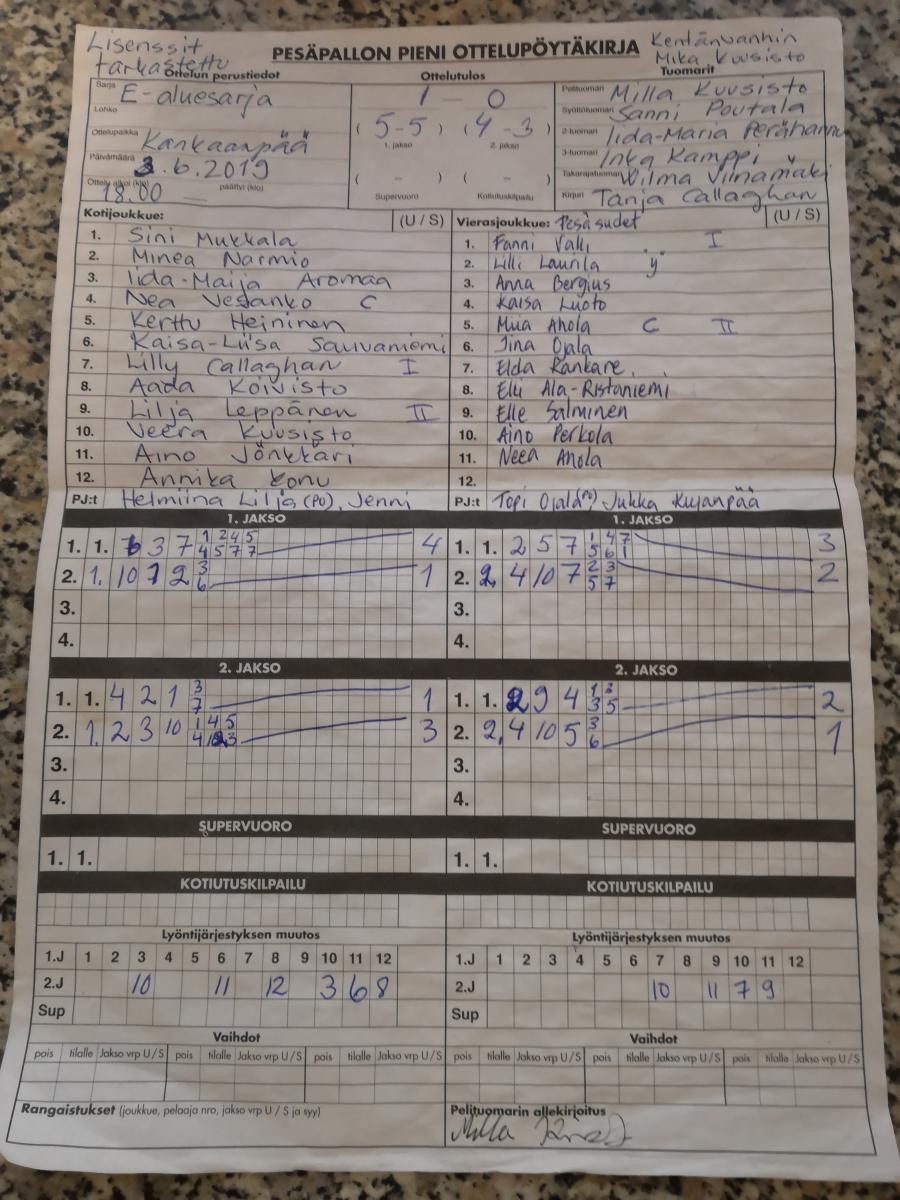 Lisenssit
tarkastettu
PESÄPALLON PIENI OTTELUPÖYTÄKIRJA
Kentänvanhin
Mika Kuusisto
Ottelun perustiedot
Ottelutulos
Tuomarit
Sarja E-aluesarja
Lohko
Ottelupaikka Kankaanpää
Päivämäärä 3.6.2019
Ottelu alkoi (klo) 18.00 päättyi (klo) —
1 – 0
( 5-5 ) ( 4-3 )
1. jakso 2. jakso
( – ) ( – )
Supervuoro Kotiutuskilpailu
Pelituomari Milla Kuusisto
Syöttötuomari Sanni Poutala
2-tuomari Iida-Maria
3-tuomari Inka Kamppi
Takarajatuomari Wilma Viinamäki
Kirjuri Tanja Callaghan
Kotijoukkue: (U / S)
1. Sini Mukkala
2. Minea Narmio
3. Iida-Maija Aromaa
4. Nea Vesanko C
5. Kerttu Heininen
6. Kaisa-Liisa Sauvaniemi
7. Lilly Callaghan I
8. Aada Koivisto
9. Lilja Leppänen II
10. Veera Kuusisto
11. Aino Jönkkäri
12. Annika
PJ:t Helmiina Lilja (PO), Jenni
Vierasjoukkue: Pesäsudet (U / S)
1. Fanni Valli I
2. Lilli Launila
3. Anna Bergius
4. Kaisa Luoto
5. Miia Ahola C II
6. Iina Ojala
7. Elda Kankare
8. Elli Ala-Ristaniemi
9. Elle Salminen
10. Aino Perkola
11. Neea Ahola
12.
PJ:t Topi Ojala, Jukka Kujanpää
1. JAKSO
1. 1. 3 7 1 2 4 5 4
4 5 7 7
2. 1. 10 2 3 1
6
3.
4.
1. JAKSO
1. 1. 2 5 7 1 4 7 3
5 6 1
2. 2. 4 10 7 2 3 2
5 7
3.
4.
2. JAKSO
1. 1. 4 2 1 3 1
7
2. 1. 2 3 10 1 4 5 3
4
3.
4.
2. JAKSO
1. 1. 2 9 4 1 2 2
3 5
2. 2. 4 10 5 3 1
6
3.
4.
SUPERVUORO
1. 1.
SUPERVUORO
1. 1.
KOTIUTUSKILPAILU
KOTIUTUSKILPAILU
Lyöntijärjestyksen muutos
1.J 1 2 3 4 5 6 7 8 9 10 11 12
2.J 10 11 12 3 6 8
Sup
Lyöntijärjestyksen muutos
1.J 1 2 3 4 5 6 7 8 9 10 11 12
2.J 10 11 7 9
Sup
Vaihdot
pois tilalle Jakso vrp U / S pois tilalle Jakso vrp U / S pois tilalle Jakso vrp U / S
Vaihdot
pois tilalle Jakso vrp U / S pois tilalle Jakso vrp U / S pois tilalle Jakso vrp U / S
Rangaistukset (joukkue, pelaaja nro, jakso vrp U / S ja syy)
Pelituomarin allekirjoitus
Milla